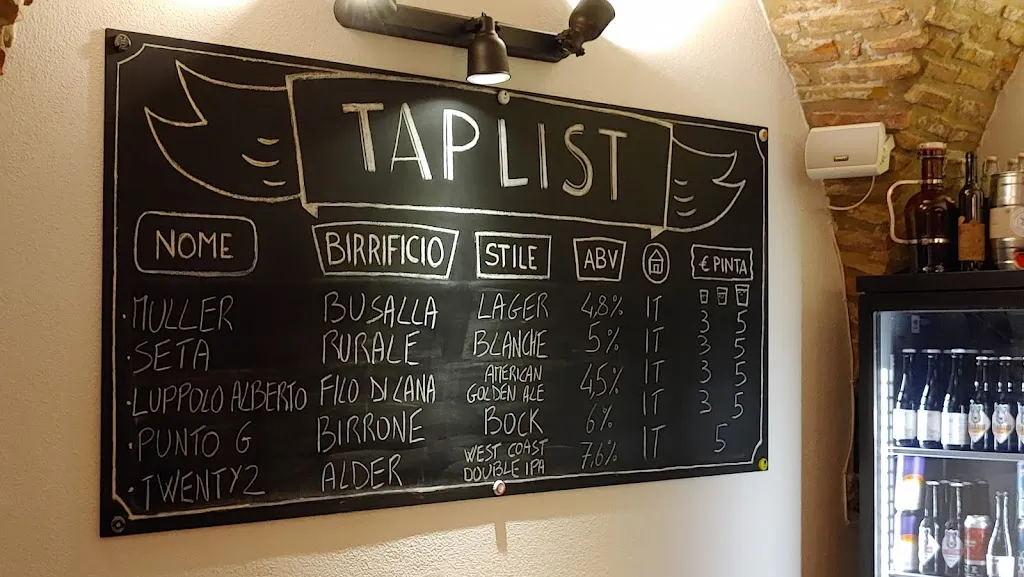 TAPLIST
NOME BIRRIFICIO STILE ABV € PINTA
· MULLER BUSALLA LAGER 4,8% IT 3 5
· SETA RURALE BLANCHE 5% IT 3 5
· LUPPOLO ALBERTO FILO DI LANA AMERICAN GOLDEN ALE 4,5% IT 3 5
· PUNTO G BIRRONE BOCK 6% IT 3 5
· TWENTY2 ALDER WEST COAST DOUBLE IPA 7,6% IT 5